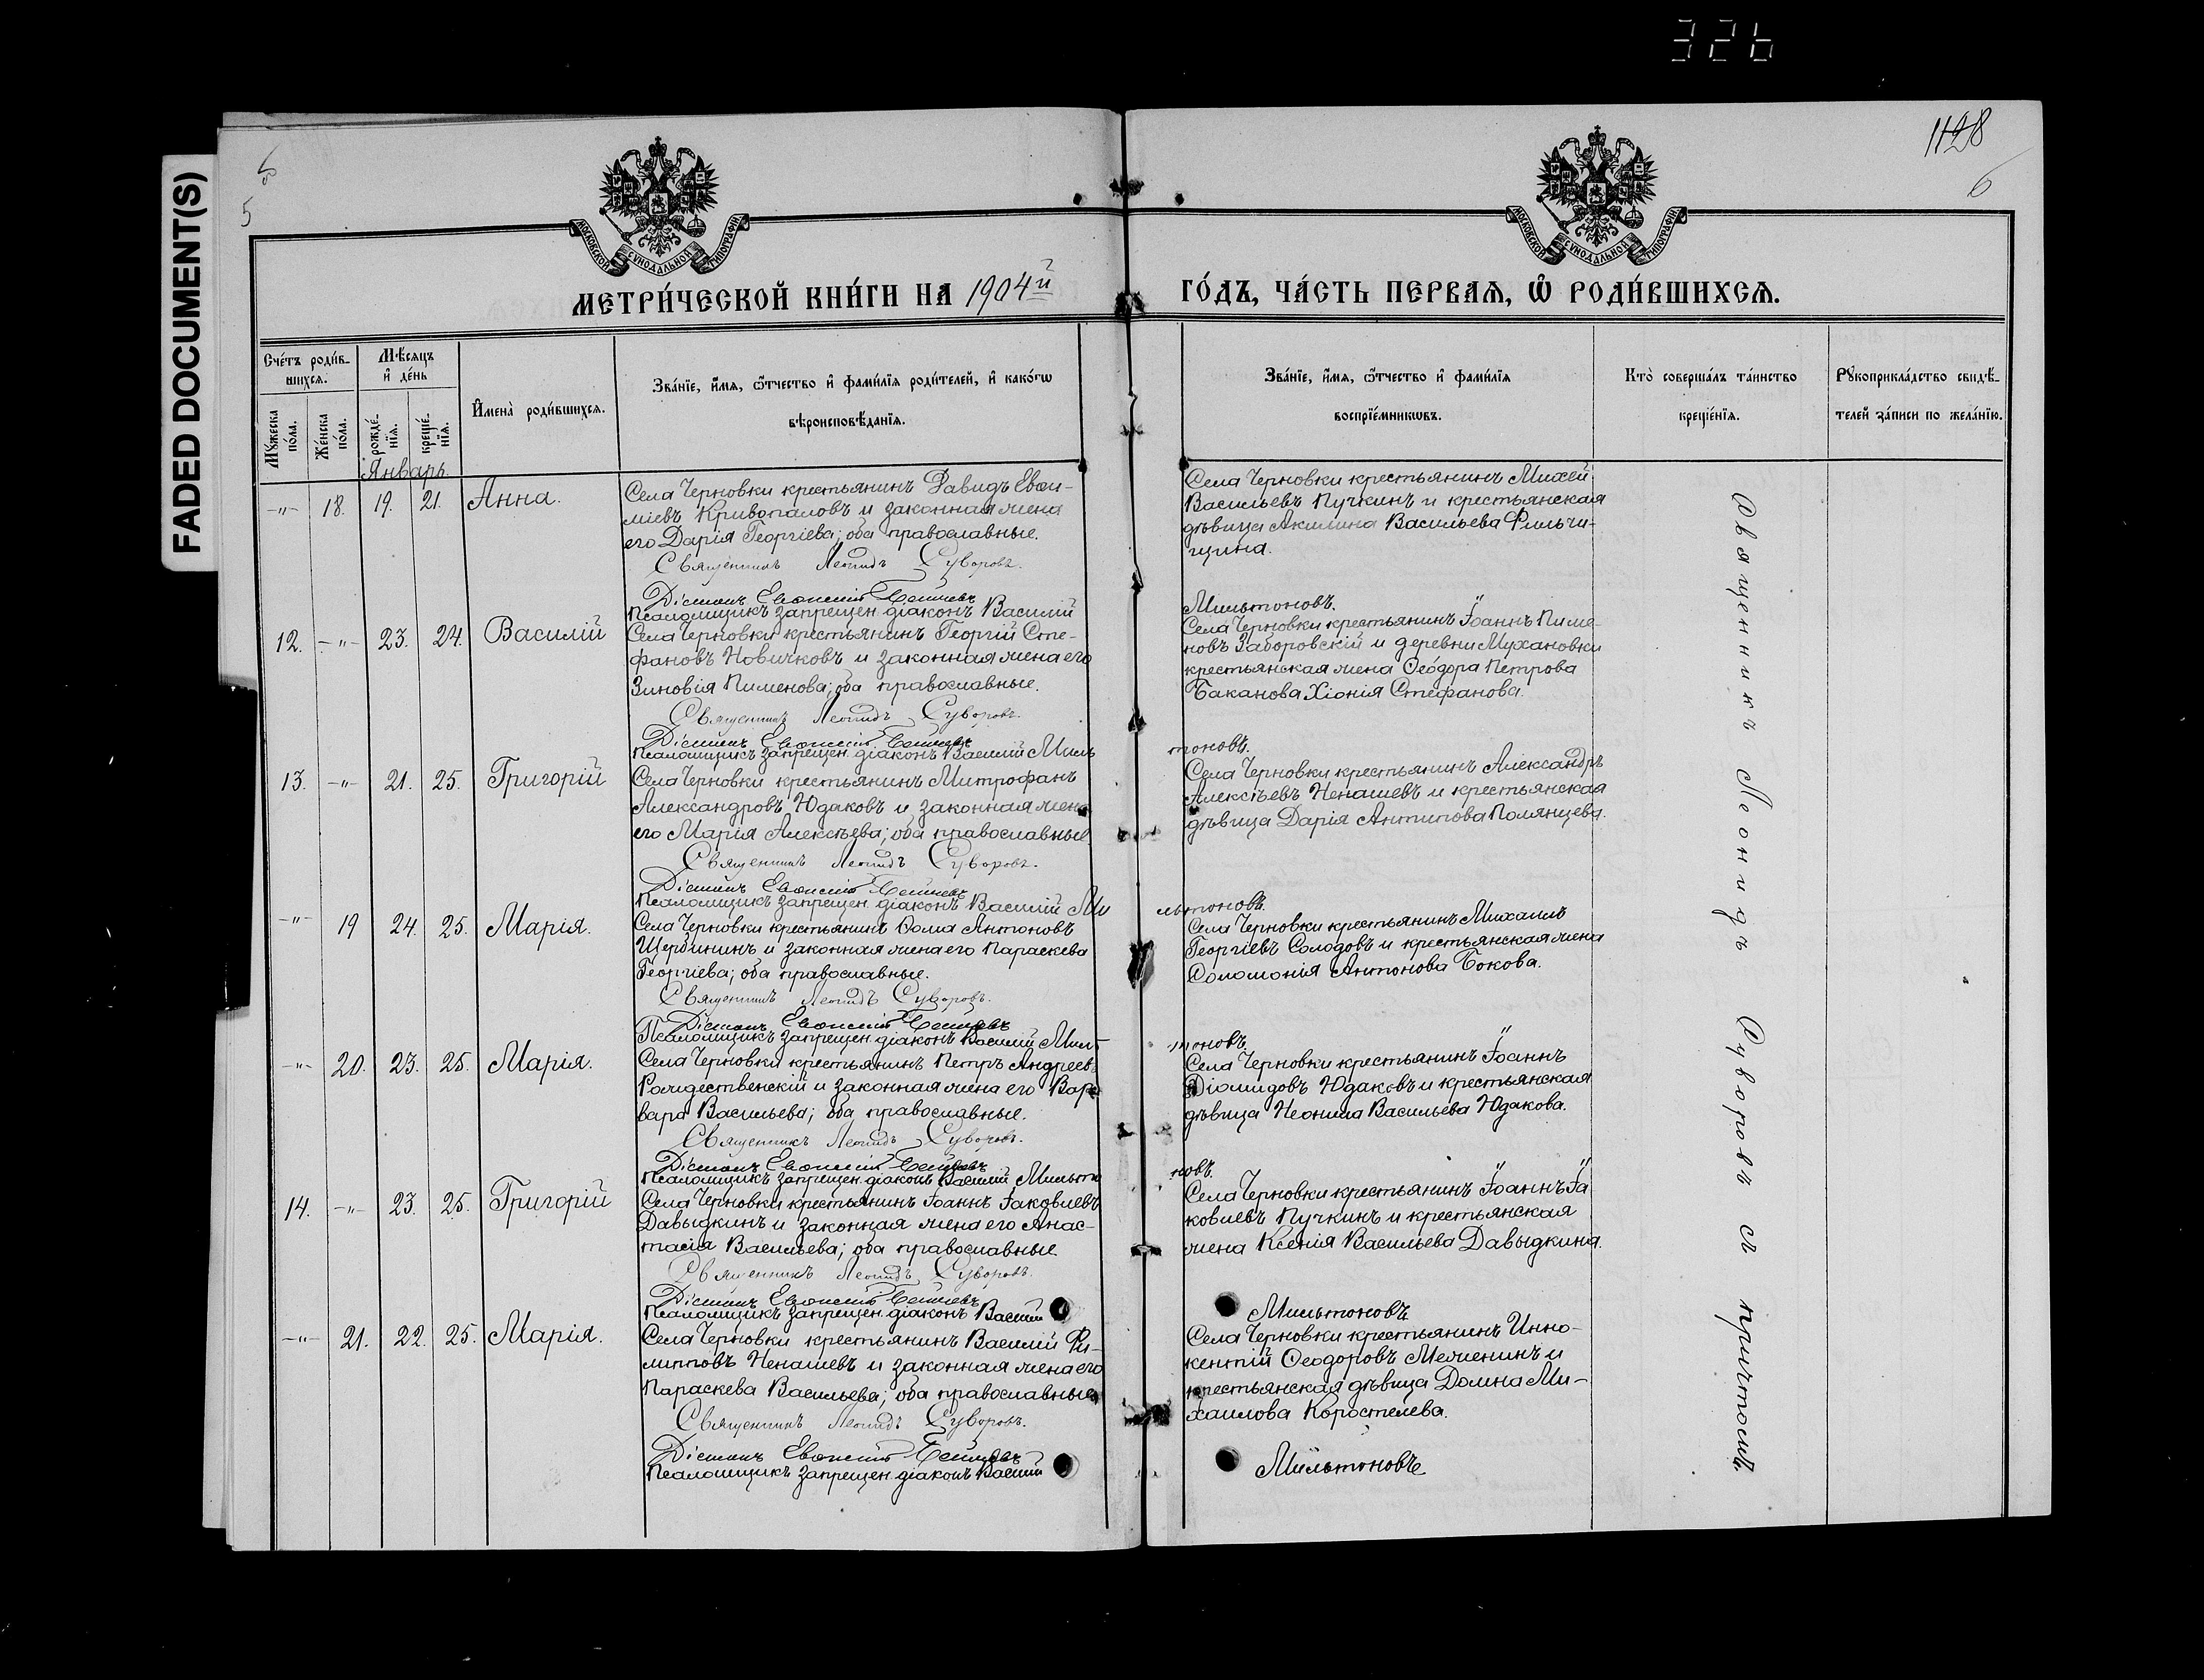 326
FADED DOCUMENT(S)
5
1128
6
МОСКОВСКОЙ СѴНОДАЛЬНОЙ ТИПОГРАФІИ
МОСКОВСКОЙ СѴНОДАЛЬНОЙ ТИПОГРАФІИ
МЕТРИ́ЧЕСКОЙ КНИ́ГИ НА 1904й
ГО́ДЪ, ЧА́СТЬ ПЕРВАѦ, Ѽ РОДИ́ВШИХСѦ.
Сче́тъ роди́в-
шихсѧ.
Мѣ́сяцъ
и҆ де́нь
Мꙋ́жеска
по́ла.
Же́нска
по́ла.
рожде́-
нїѧ.
креще́-
нїѧ.
И҆мена̀ роди́вшихсѧ.
Зва́нїе, и҆́мѧ, ѻ҆́тчество и҆ фами́лїѧ роди́телей, и҆ како́гѡ
вѣроисповѣ́данїѧ.
Зва́нїе, и҆́мѧ, ѻ҆́тчество и҆ фами́лїѧ
воспрїе́мникѡвъ.
Кто̀ соверша́лъ та́инство
креще́нїѧ.
Рꙋкоприкла́дство свидѣ́-
телей за́писи по жела́нїю.
Январь.
-"- 18. 19. 21. Анна.
Села Черновки крестьянинъ Давидъ Евѳи-
міевъ Кривопаловъ и законная жена
его Дарія Георгіева; оба православные.
Священникъ Леонидъ Суворовъ.
Діаконъ Евѳимій
Псаломщикъ запрещен. діаконъ Василій
Села Черновки крестьянинъ Михей
Васильевъ Пучкинъ и крестьянская
дѣвица Акилина Васильева Фильчи-
щина.
Мильтоновъ.
12. -"- 23. 24. Василій
Села Черновки крестьянинъ Георгій Сте-
фановъ Новичковъ и законная жена его
Зиновія Пименова; оба православные.
Священникъ Леонидъ Суворовъ.
Діаконъ Евѳимій
Псаломщикъ запрещен. діаконъ Василій Миль
Села Черновки крестьянинъ Іоаннъ Пиме-
новъ Заборовскій и деревни Мухановки
крестьянская жена Ѳеодора Петрова
Баканова Хіонія Стефанова.
тоновъ.
13. -"- 21. 25. Григорій
Села Черновки крестьянинъ Митрофанъ
Александровъ Юдаковъ и законная жена
его Марія Алексѣева; оба православные.
Священникъ Леонидъ Суворовъ.
Діаконъ Евѳимій
Псаломщикъ запрещен. діаконъ Василій Ми
Села Черновки крестьянинъ Александръ
Алексѣевъ Ненашевъ и крестьянская
дѣвица Дарія Антипова Полянцева.
льтоновъ.
-"- 19 24. 25. Марія.
Села Черновки крестьянинъ Ѳома Антоновъ
Щербининъ и законная жена его Параскева
Георгіева; оба православные.
Священникъ Леонидъ Суворовъ.
Діаконъ Евѳимій
Псаломщикъ запрещен. діаконъ Василій Миль
Села Черновки крестьянинъ Михаилъ
Георгіевъ Солодовъ и крестьянская жена
Соломонія Антонова Бокова.
тоновъ.
-"- 20. 23. 25. Марія.
Села Черновки крестьянинъ Петръ Андреевъ
Рождественскій и законная жена его Вар-
вара Васильева; оба православные.
Священникъ Леонидъ Суворовъ.
Діаконъ Евѳимій
Псаломщикъ запрещен. діаконъ Василій Мильто
Села Черновки крестьянинъ Іоаннъ
Діомидовъ Юдаковъ и крестьянская
дѣвица Неонила Васильева Юдакова.
новъ.
14. -"- 23. 25. Григорій
Села Черновки крестьянинъ Іоаннъ Іаковлевъ
Давыдкинъ и законная жена его Анас-
тасія Васильева; оба православные.
Священникъ Леонидъ Суворовъ.
Діаконъ Евѳимій
Псаломщикъ запрещен. діаконъ Василій
Села Черновки крестьянинъ Іоаннъ Іа
ковлевъ Пучкинъ и крестьянская
жена Ксенія Васильева Давыдкина.
Мильтоновъ.
-"- 21. 22. 25. Марія.
Села Черновки крестьянинъ Василій Фи-
липповъ Ненашевъ и законная жена его
Параскева Васильева; оба православные.
Священникъ Леонидъ Суворовъ.
Діаконъ Евѳимій
Псаломщикъ запрещен. діаконъ Василій
Села Черновки крестьянинъ Инно-
кентій Ѳеодоровъ Меженинъ и
крестьянская дѣвица Домна Ми-
хаилова Коростелева.
Мильтоновъ
Священникъ Леонидъ Суворовъ съ причтомъ.